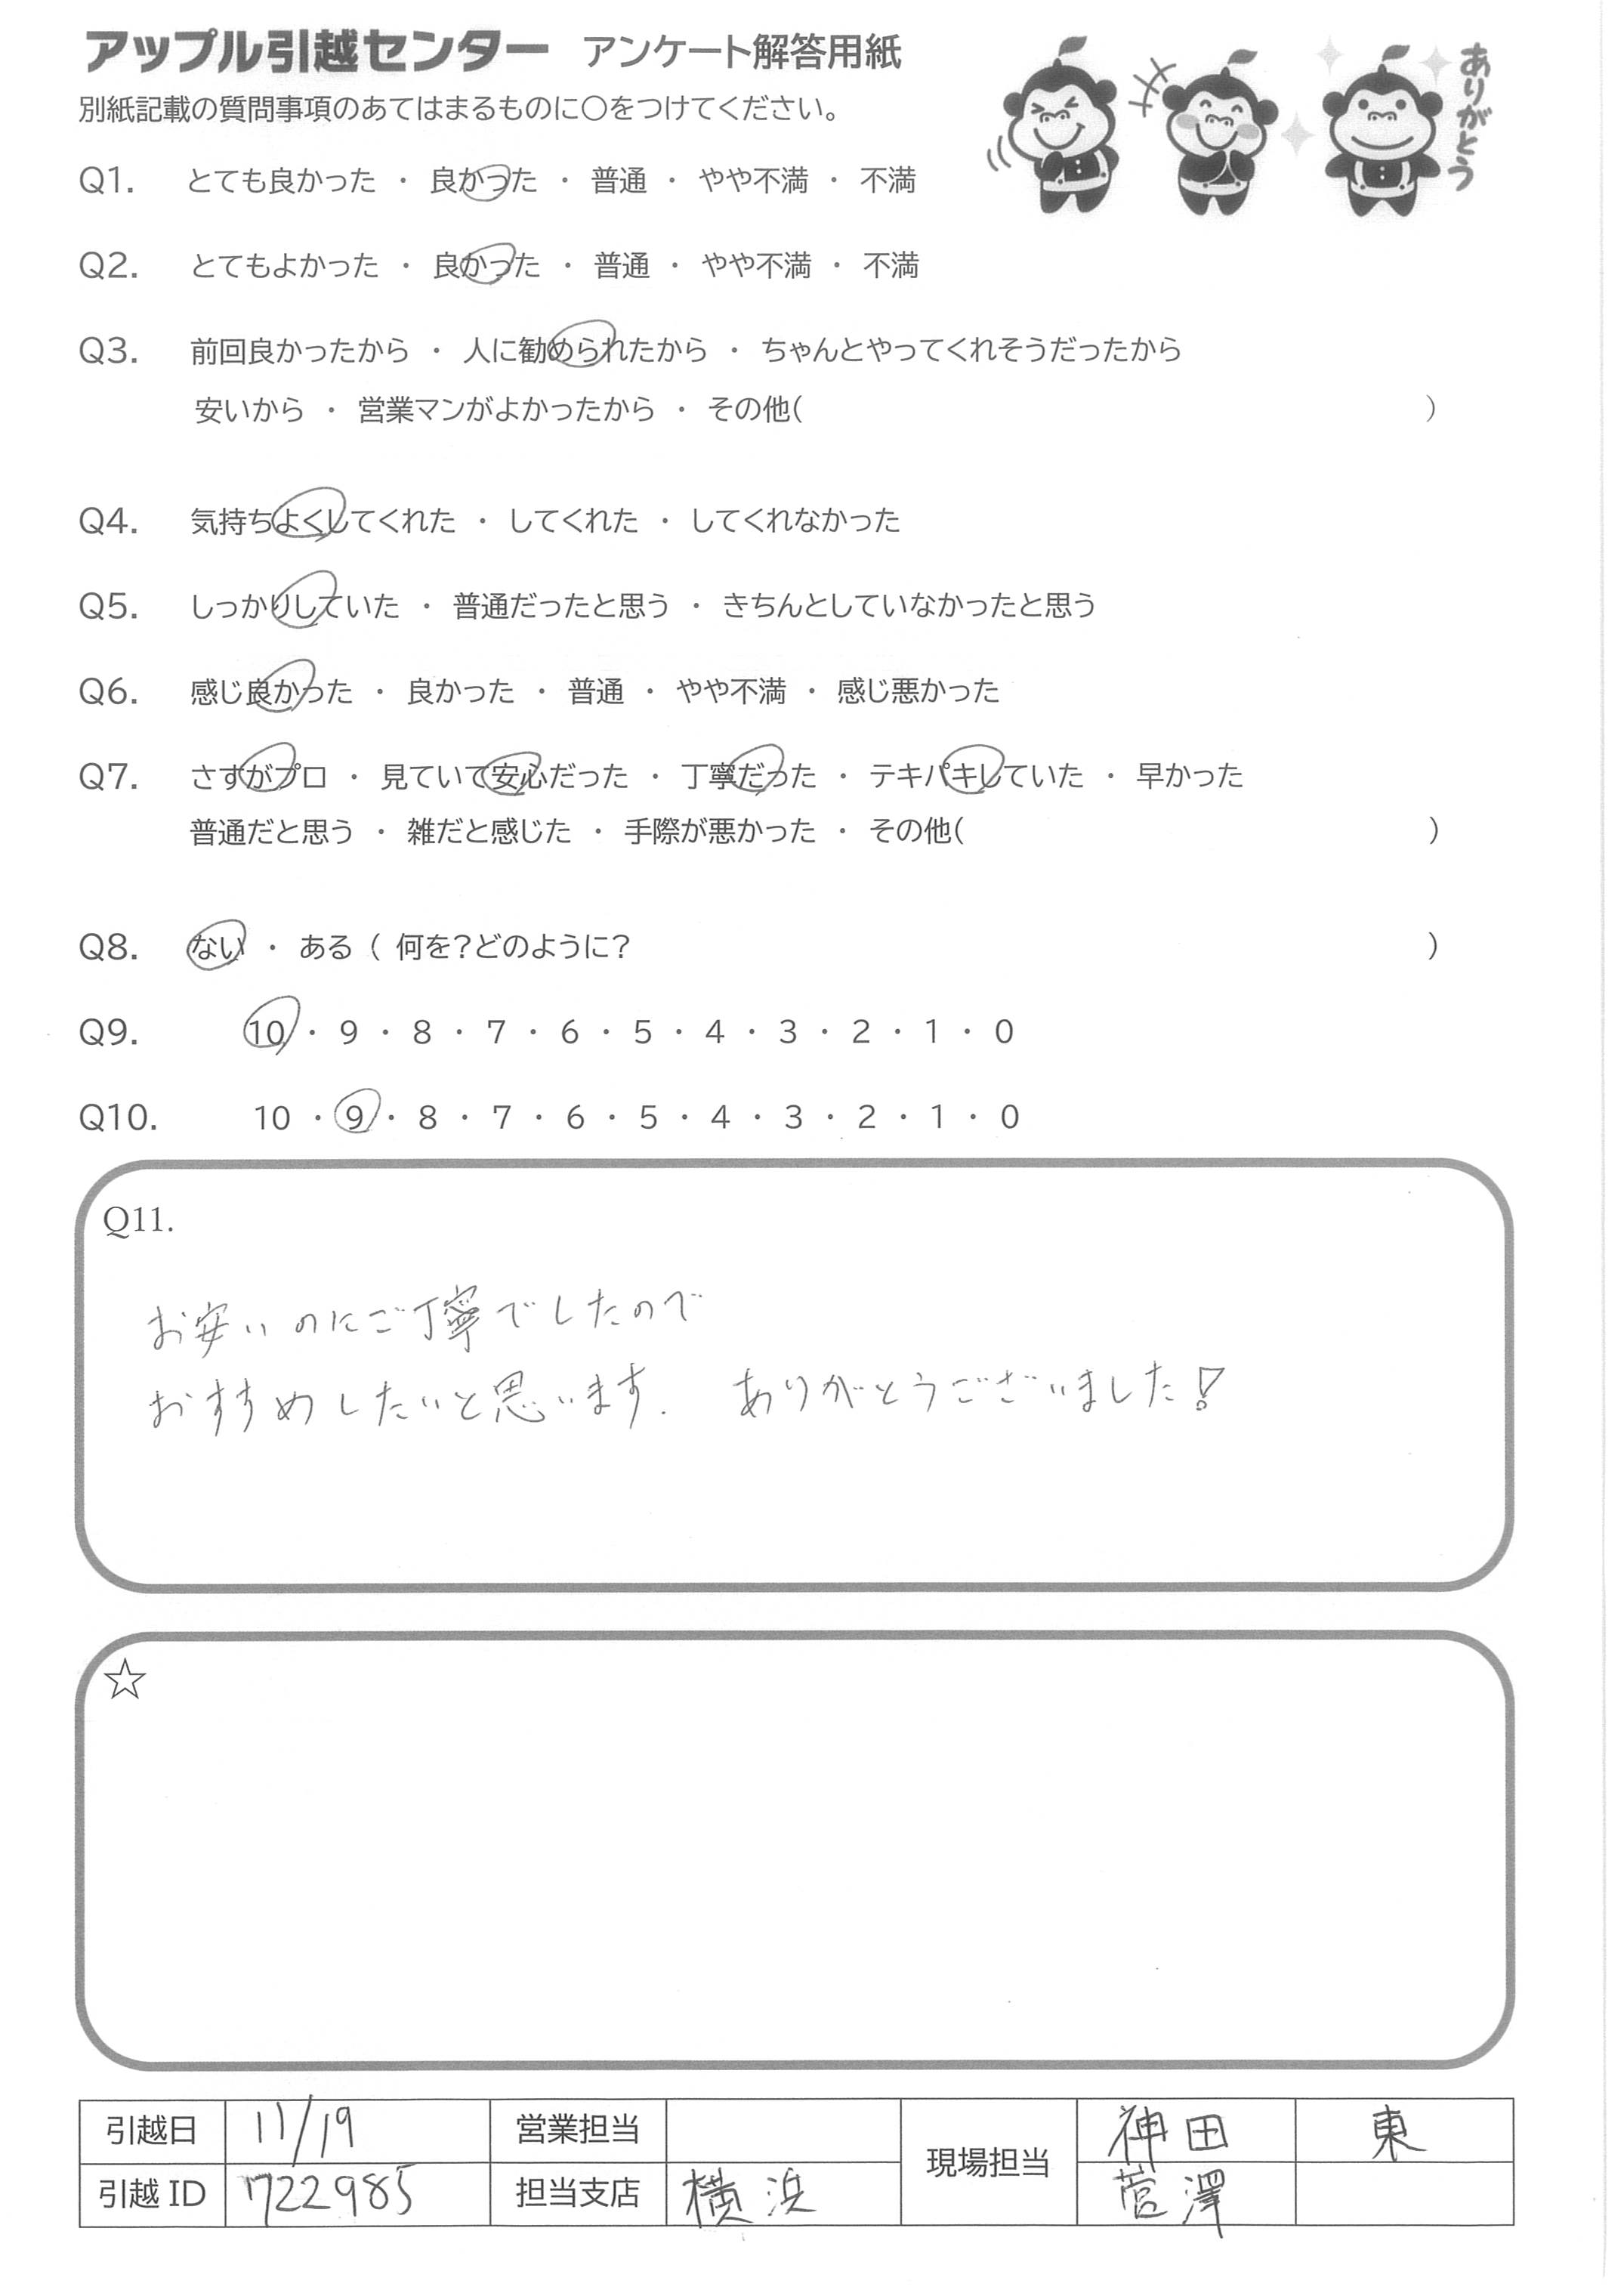 アップル引越センター アンケート解答用紙
ありがとう
別紙記載の質問事項のあてはまるものに○をつけてください。
Q1. とても良かった ・ 良かった ・ 普通 ・ やや不満 ・ 不満
Q2. とてもよかった ・ 良かった ・ 普通 ・ やや不満 ・ 不満
Q3. 前回良かったから ・ 人に勧められたから ・ ちゃんとやってくれそうだったから
安いから ・ 営業マンがよかったから ・ その他( )
Q4. 気持ちよくしてくれた ・ してくれた ・ してくれなかった
Q5. しっかりしていた ・ 普通だったと思う ・ きちんとしていなかったと思う
Q6. 感じ良かった ・ 良かった ・ 普通 ・ やや不満 ・ 感じ悪かった
Q7. さすがプロ ・ 見ていて安心だった ・ 丁寧だった ・ テキパキしていた ・ 早かった
普通だと思う ・ 雑だと感じた ・ 手際が悪かった ・ その他( )
Q8. ない ・ ある ( 何を?どのように? )
Q9. 10 ・ 9 ・ 8 ・ 7 ・ 6 ・ 5 ・ 4 ・ 3 ・ 2 ・ 1 ・ 0
Q10. 10 ・ 9 ・ 8 ・ 7 ・ 6 ・ 5 ・ 4 ・ 3 ・ 2 ・ 1 ・ 0
Q11.
お安いのにご丁寧でしたので
おすすめしたいと思います. ありがとうございました!
☆
引越日 11/19 営業担当 現場担当 神田 東
引越 ID 722985 担当支店 横浜 菅澤